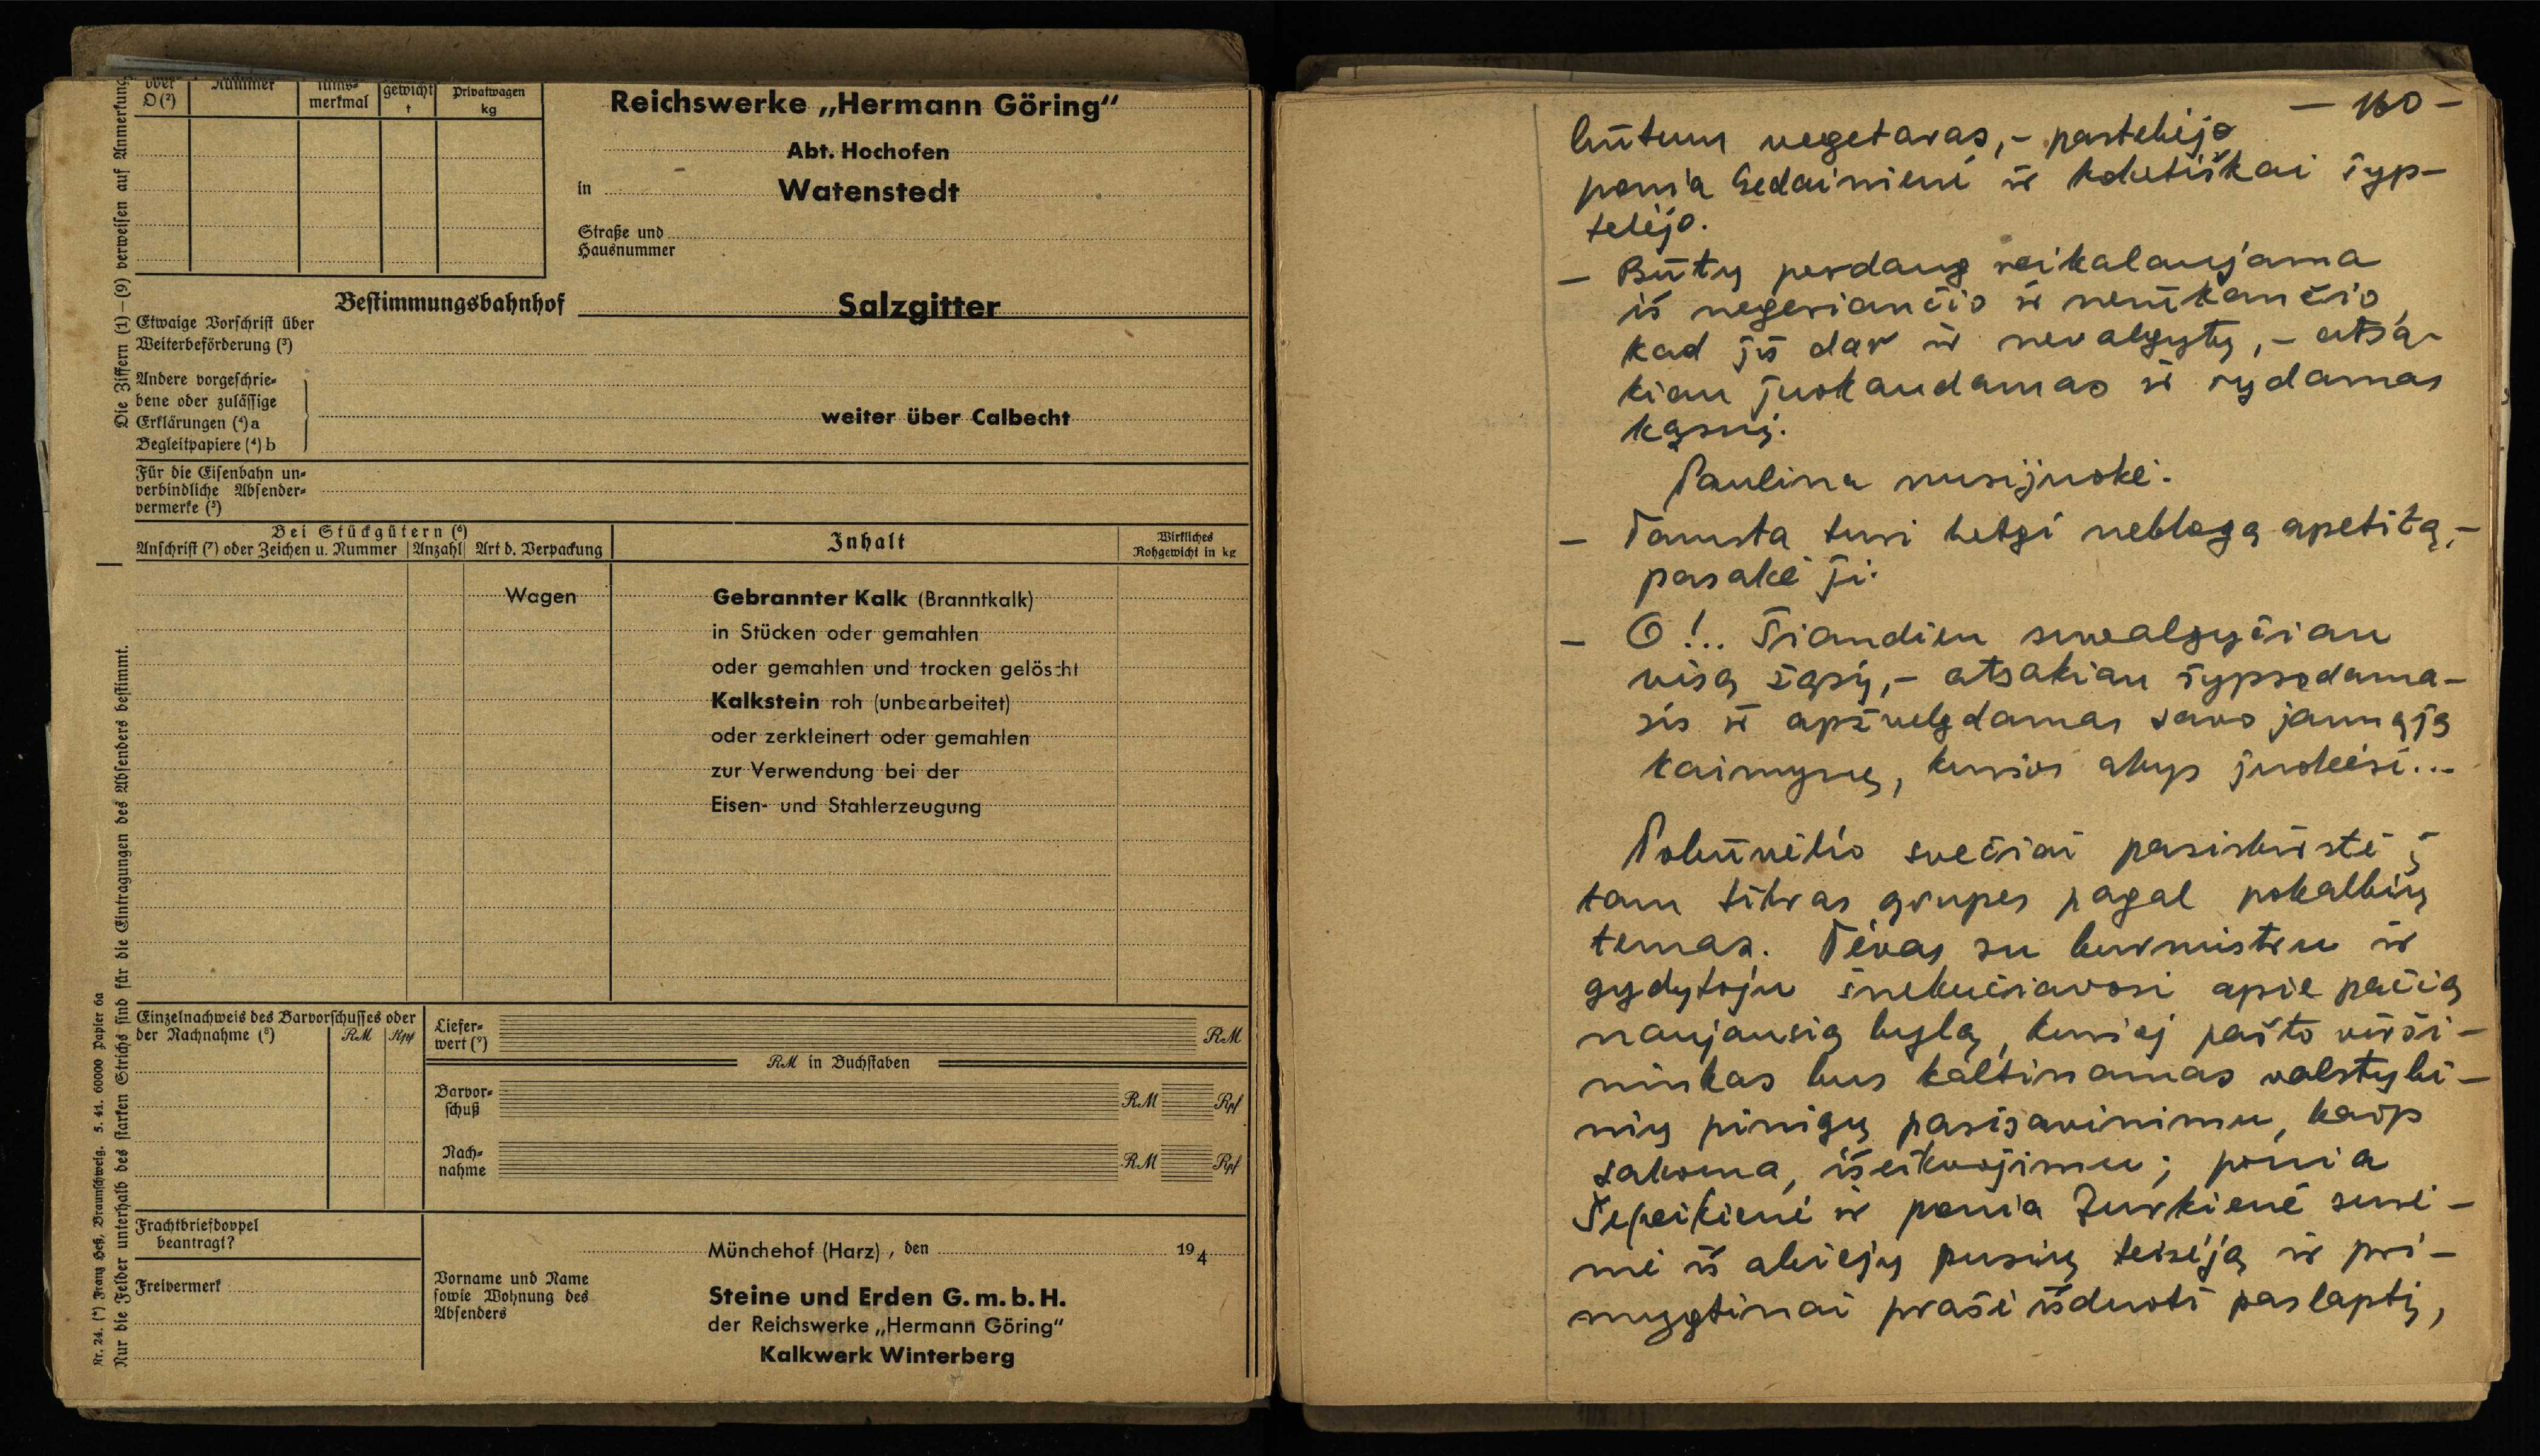 oder
D (²)
Nummer
tums-
merkmal
gewicht
t
Privatwagen
kg
Die Ziffern (1)–(9) verweisen auf Anmerkung
Reichswerke „Hermann Göring“
Abt. Hochofen
in
Watenstedt
Straße und
Hausnummer
Bestimmungsbahnhof
Salzgitter
Etwaige Vorschrift über
Weiterbeförderung (³)
Andere vorgeschrie-
bene oder zulässige
Erklärungen (⁴) a
Begleitpapiere (⁴) b
weiter über Calbecht
Für die Eisenbahn un-
verbindliche Absender-
vermerke (⁵)
Bei Stückgütern (⁶)
Anschrift (⁷) oder Zeichen u. Nummer
Anzahl
Art d. Verpackung
Inhalt
Wirkliches
Rohgewicht in kg
Wagen
Gebrannter Kalk (Branntkalk)
in Stücken oder gemahlen
oder gemahlen und trocken gelöscht
Kalkstein roh (unbearbeitet)
oder zerkleinert oder gemahlen
zur Verwendung bei der
Eisen- und Stahlerzeugung
Nur die Felder unterhalb des starken Strichs sind für die Eintragungen des Absenders bestimmt.
Nr. 24. (*) Franz Heß, Braunschweig. 5. 41. 60000 Papier 6a
Einzelnachweis des Barvorschusses oder
der Nachnahme (⁸)
RM
Rpf
Liefer-
wert (⁹)
RM
RM in Buchstaben
Barvor-
schuß
RM
Rpf
Nach-
nahme
RM
Rpf
Frachtbriefdoppel
beantragt?
Freivermerk
Münchehof (Harz), den
194
Vorname und Name
sowie Wohnung des
Absenders
Steine und Erden G.m.b.H.
der Reichswerke „Hermann Göring“
Kalkwerk Winterberg
– 160 –
būtum vegetaras, – pastebėjo
ponia Gedainienė ir koketiškai šyp-
telėjo.
– Būtų perdaug reikalaujama
iš negeriančio ir nerūkančio,
kad jis dar ir nevalgytų, – atsa-
kiau juokaudamas ir rydamas
kąsnį.
Paulina nusijuokė.
– Tamsta turi betgi neblogą apetitą, –
pasakė ji.
– O!.. Šiandien suvalgyčiau
visą žąsį, – atsakiau šypsodama-
sis ir apžvelgdamas savo jaunąją
kaimynę, kurios akys juokėsi...
Pobūvėlio svečiai pasiskirstė į
tam tikras grupes pagal pokalbių
temas. Tėvas su burmistru ir
gydytoju šnekučiavosi apie pačią
naujausią bylą, kurioj pašto virši-
ninkas bus kaltinamas valstybi-
nių pinigų pasisavinimu, kaip
sakoma, išeikvojimu; ponia
Šepeikienė ir ponia Žurkienė suri-
mė iš abiejų pusių teisėją ir pri-
mygtinai prašė išduoti paslaptį,